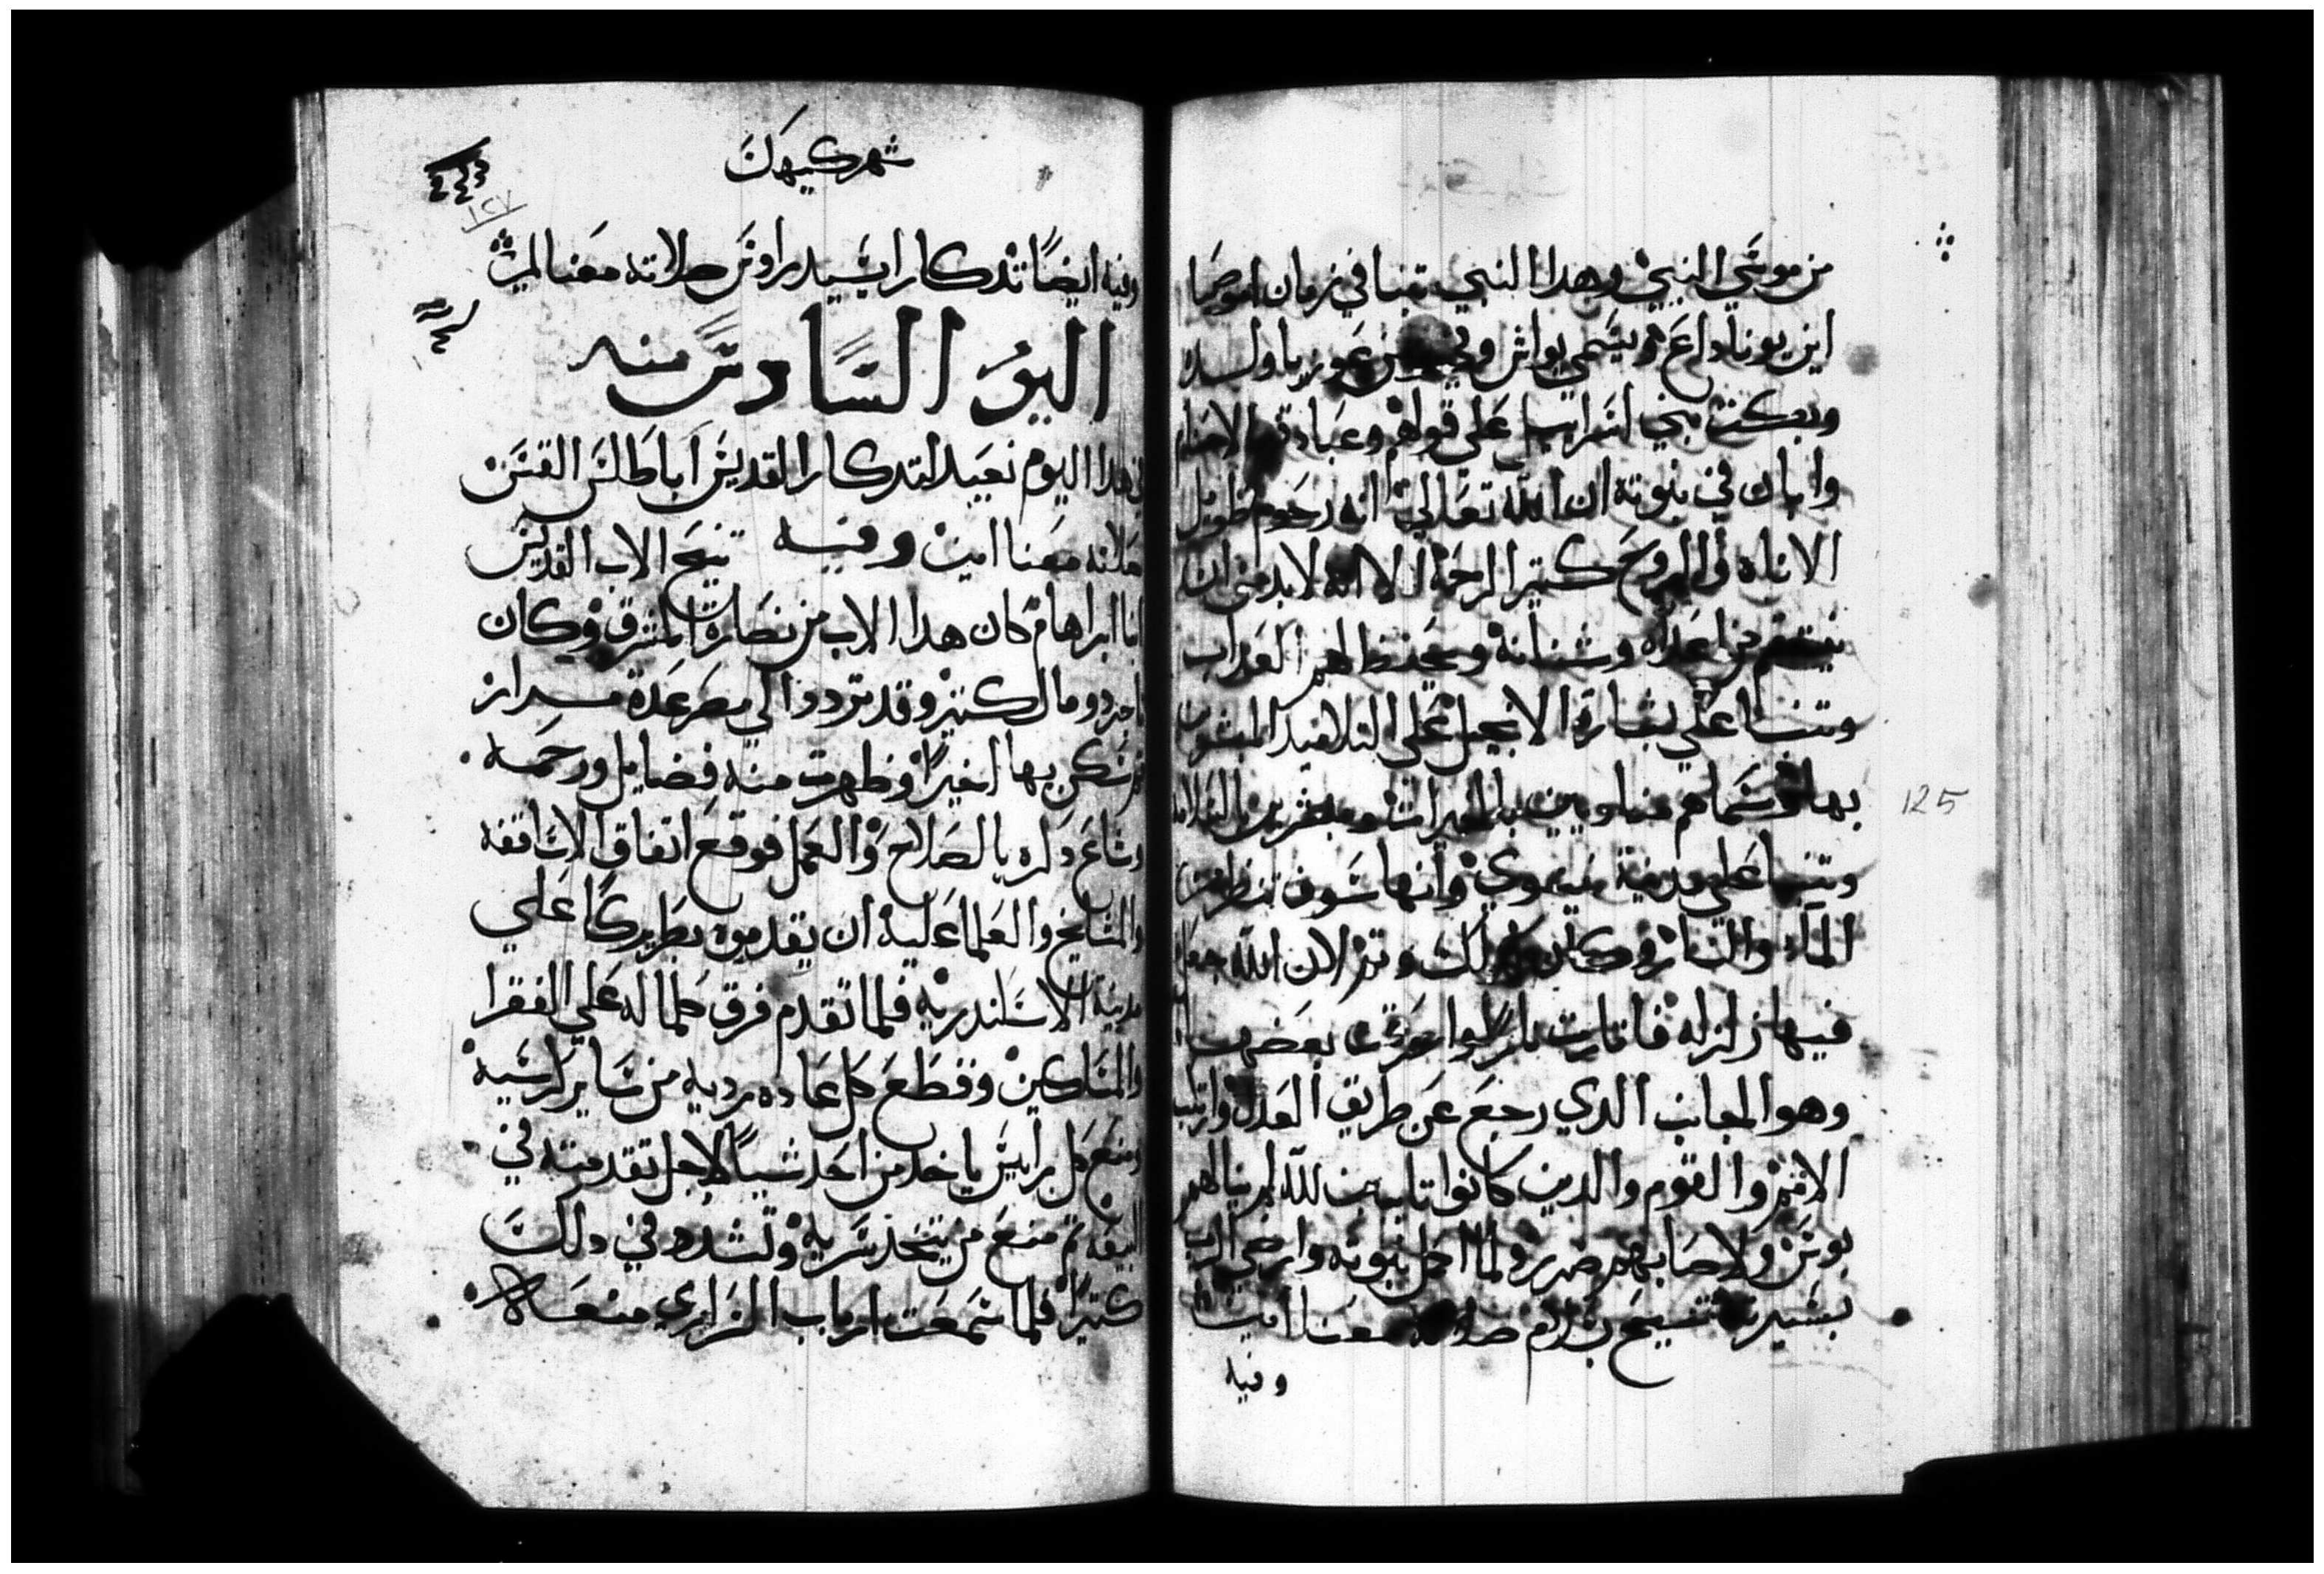 من موسي النبي وهدا النبي تنبا في زمان اموصيا
ابن يوناداع ويسمي يواش وفي عوزيا ولده
وبكت بني اسراييل علي وعبادتهم الاصنام
وابان في نبوته ان الله تعالي انه رحوم طويل
الاناه والروح كتير الرحمة الا انه لابد من ان
ينتقم من اعداه وشنانه ويحفظ لهم العداب
وتنبا علي بشارة الانجيل علي التلاميد المبشرين
بها وسماهم مبشرين بالسلامه
وتنبا علي مدينة نينوي وانها سوف
الماء والنار وكان كدلك وتم لان الله جعل
فيها زلزله فاتارت نار بعضها
وهو الجانب الدي رجع عن طريق العدل وارتكب
الاتم والقوم والدين كانوا تايبين لله لم ينالهم
بوس ولا اصابهم ضرر ولما اكمل نبوته وارضي الرب
بسيرته تنيح بسلام صلاته معنا امين
وفيه
شهر كيهك
١٢٧
وفيه ايضا تدكار ايسيدراوس صلاته معنا امين
اليوم السادس منه
في هدا اليوم نعيد لتدكار القديس اباطلس القس
صلاته معنا امين وفيه تنيح الاب القديس
انبا ابراهام كان هدا الاب من نصارة المشرق وكان
تاجر دو مال كتير وقد تردد الي مصر عدة مرار
تم سكن بها اخيرا وظهرت منه فضايل ورحمه
وشاع دكره بالصلاح والعمل فوقع اتفاق الاساقفه
والمشايخ والعلما عليه ان يقدموه بطريركا علي
مدينة الاسكندريه فلما تقدم فرق كلما له علي الفقرا
والمساكين وقطع كل عاده رديه من ساير كرسيه
ومنع كل رايس ياخد من احد شيا لاجل تقدمته في
البيعه تم منع من يتخد سريه وتشدد في دلك
كتيرا فلما سمعت ارباب السراري منعه
125